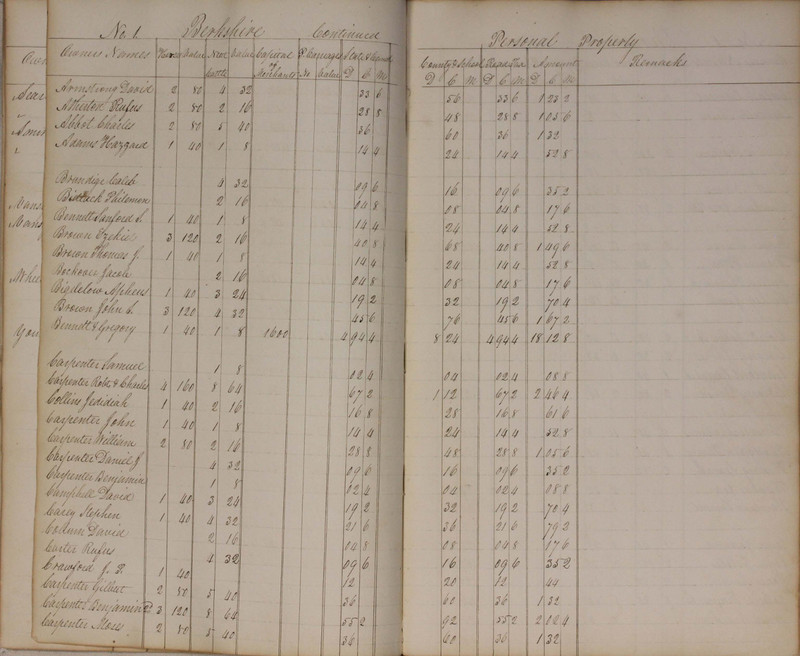 No. 1 Berkshire Continued Personal Property
Owners Names Horses Value Neat Cattle Value Capital of Merchants &c Carriages No Value State & Canal D C M County & School D C M Road Tax D C M Amount D C M Remarks
Armstrong David 2 80 4 32 33 6 56 33 6 1 23 2
Atherton Rufus 2 80 2 16 28 8 48 28 8 1 05 6
Abbot Charles 2 80 5 40 36 60 36 1 32
Adams Hazzard 1 40 1 8 14 4 24 14 4 52 8
Brundige Caleb 4 32 09 6 16 09 6 35 2
Bidlack Philemon 2 16 04 8 08 04 8 17 6
Bennett Sanford S. 1 40 1 8 14 4 24 14 4 52 8
Brown Ezekiel 3 120 2 16 40 8 68 40 8 1 49 6
Brown Thomas J. 1 40 1 8 14 4 24 14 4 52 8
Jacob 2 16 04 8 08 04 8 17 6
Bigdelow Alpheus 1 40 3 24 19 2 32 19 2 70 4
Brown John S. 3 120 4 32 45 6 76 45 6 1 67 2
Bennett & Gregory 1 40 1 8 1600 4 94 4 8 24 4 94 4 18 12 8
Carpenter Samuel 1 8 02 4 04 02 4 08 8
Carpenter Robt. & Charles 4 160 8 64 67 2 1 12 67 2 2 46 4
Collins Jedidiah 1 40 2 16 16 8 28 16 8 61 6
Carpenter John 1 40 1 8 14 4 24 14 4 52 8
Carpenter William 2 80 2 16 28 8 48 28 8 1 05 6
Carpenter Daniel J 4 32 09 6 16 09 6 35 2
Carpenter Benjamin 1 8 02 4 04 02 4 08 8
Camphell David 1 40 3 24 19 2 32 19 2 70 4
Carey Stephen 1 40 4 32 21 6 36 21 6 79 2
David 2 16 04 8 08 04 8 17 6
Carter Rufus 4 32 09 6 16 09 6 35 2
Crawford J. 1 40 12 20 12 44
Carpenter Gilbert 2 80 5 40 36 60 36 1 32
Carpenter Benjamin 2d 3 120 8 64 55 2 92 55 2 2 02 4
Carpenter Moses 2 80 5 40 36 60 36 1 32